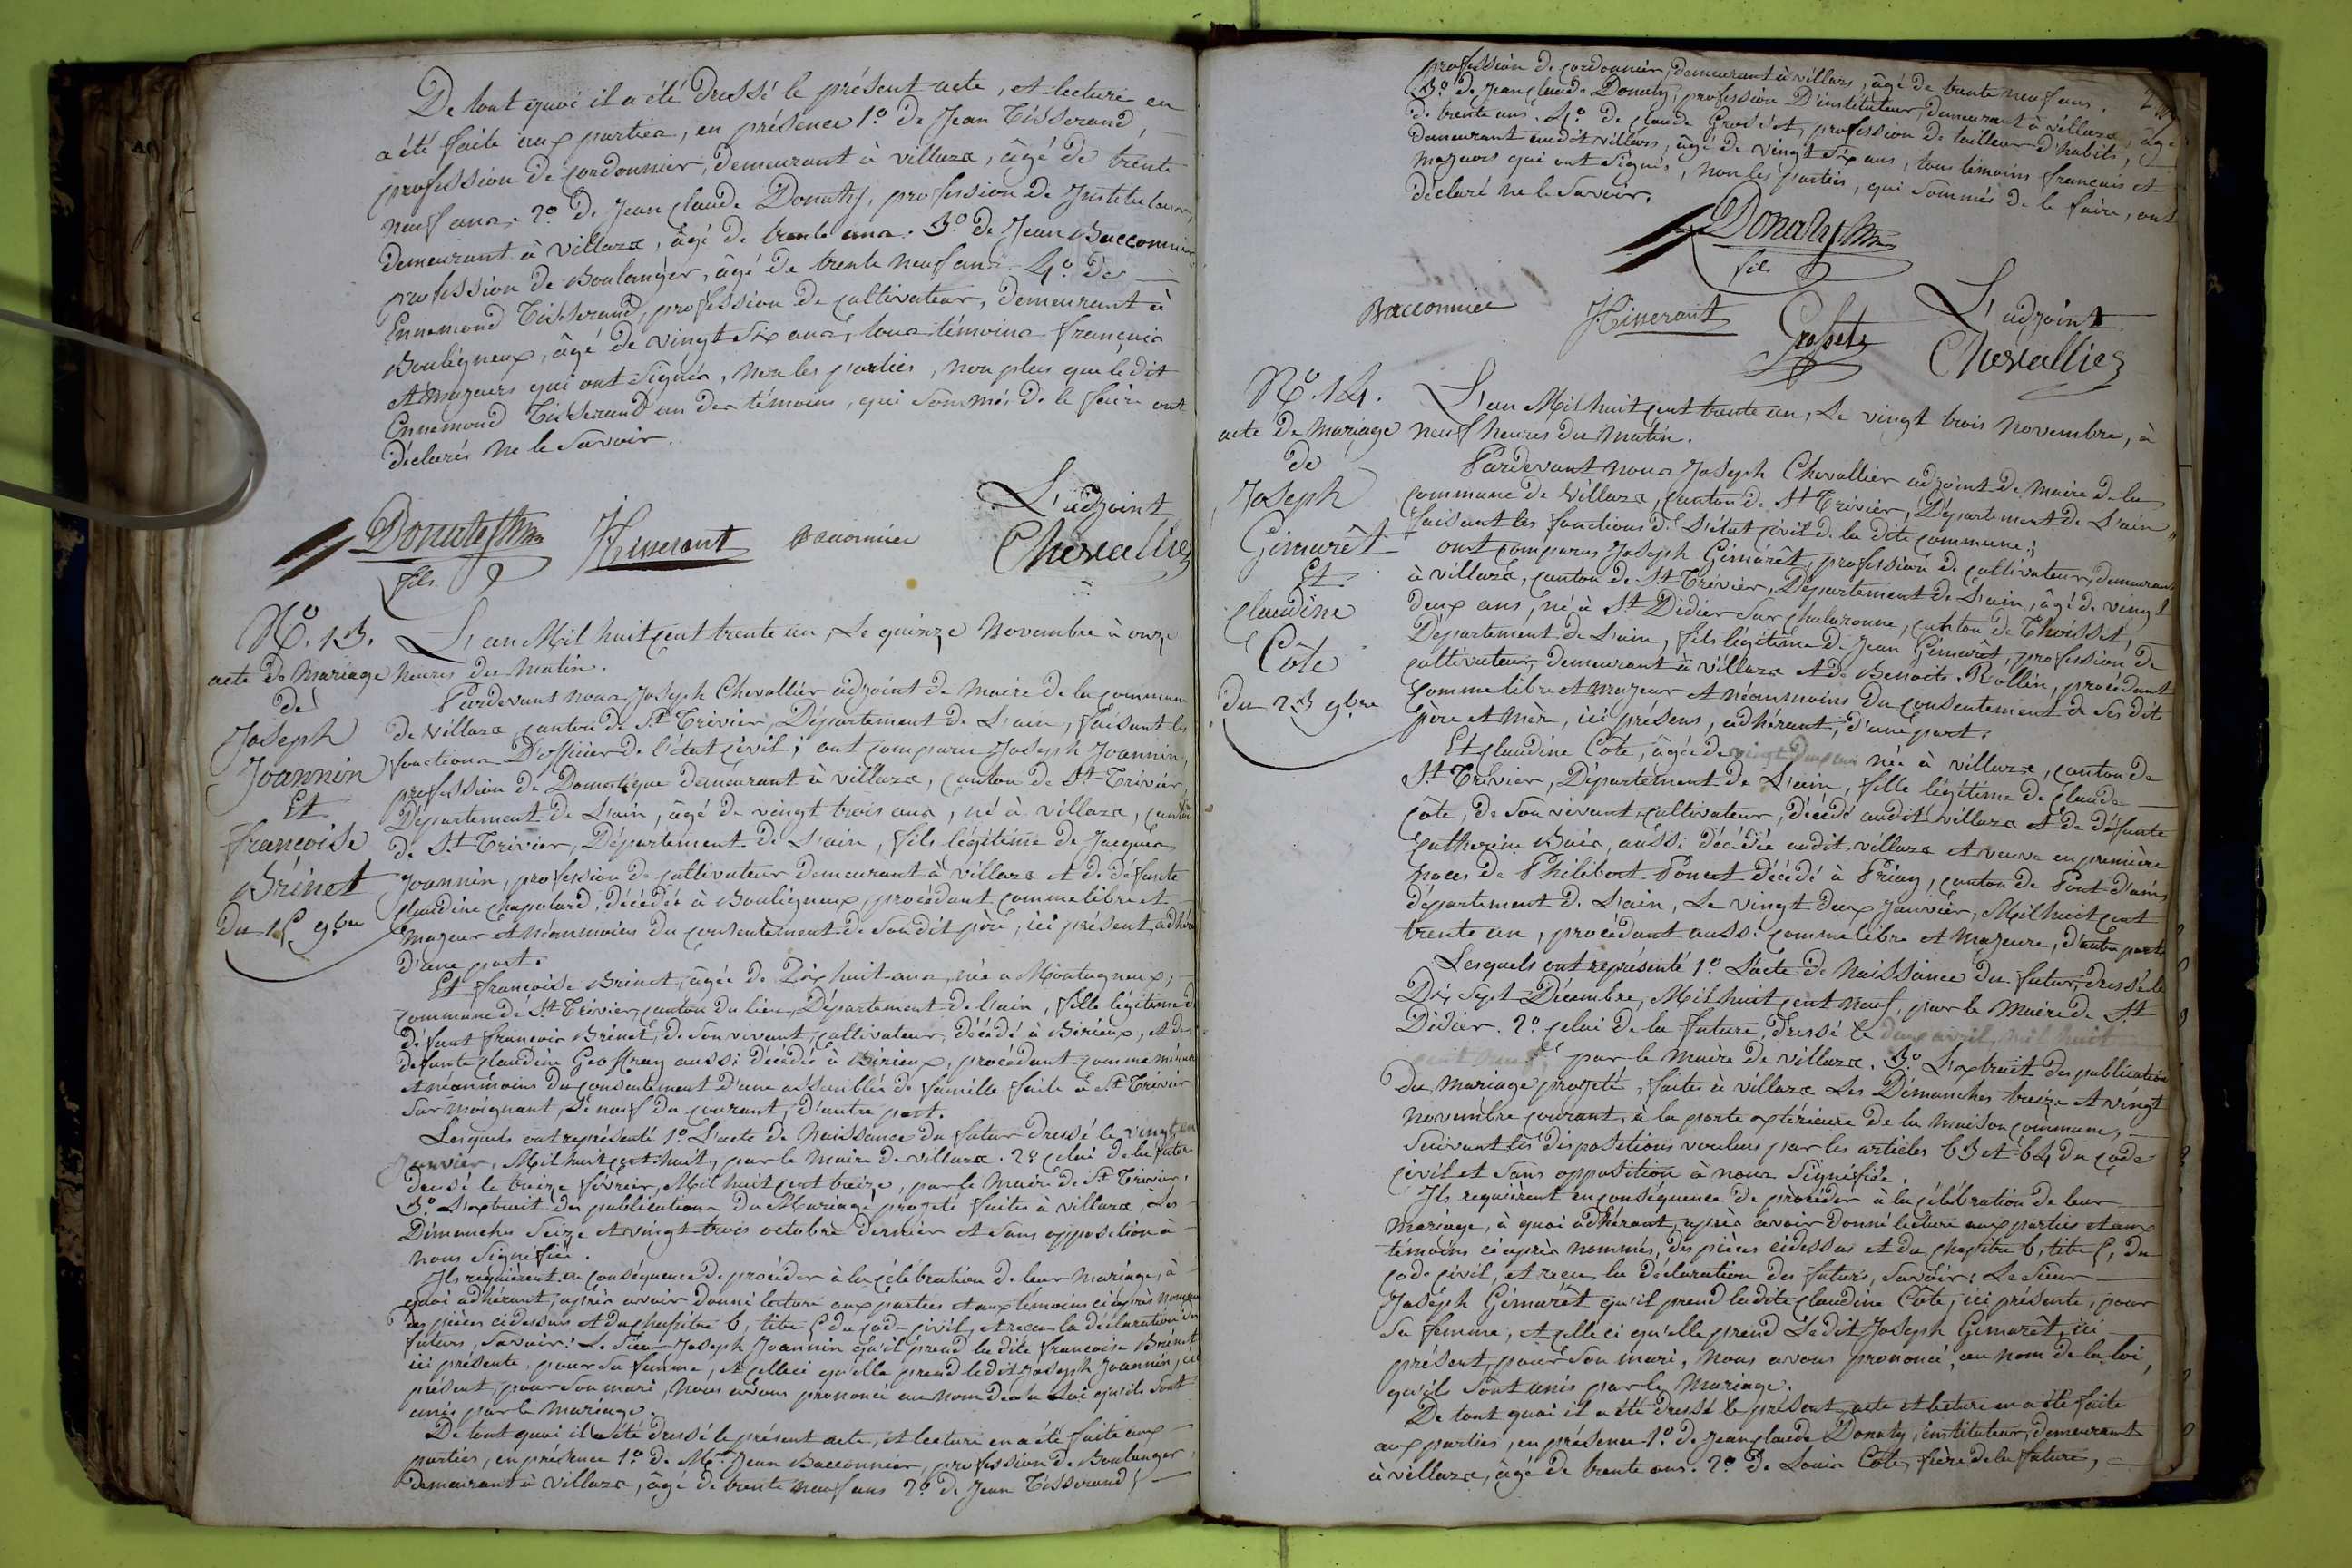 De tout quoi il a été dressé le présent acte, et lecture en
a été faite aux parties, en présence 1.º de Jean Tisserand,
profession de cordonnier, demeurant à villars, âgé de trente
neuf ans. 2º. de Jean Claude Donaty, profession de Instituteur,
demeurant à villars, âgé de trente ans. 3.º de Jean Bacconnier
profession de Boulanger, âgé de trente neuf ans. 4.º de
Ennemond Tisserand, profession de cultivateur, demeurant à
Bouligneux, âgé de vingt six ans, tous témoins français
et majeurs qui ont signés, non les parties, non plus que le dit
Ennemond Tisserand un des témoins, qui sommés de le faire ont
déclarés ne le savoir.
L'adjoint
Donaty fils Tisserant Bacconnier Chevallier
Nº. 13.
acte de mariage
de
Joseph
Joannin
Et
françoise
Brinet
du 15 9bre
L'an Mil huit cent trente un, Le quinze Novembre à onze
heures du matin.
Pardevant nous Joseph Chevallier adjoint de Maire de la commune
de Villars canton de St. Trivier, Département de L'ain, faisant les
fonctions D'officier de l'état civil; ont comparu Joseph Joannin,
profession de Domestique demeurant à villars, canton de St. Trivier,
Département de L'ain, âgé de vingt trois ans, né à villars, canton
de St. Trivier, Département de L'ain, fils légitime de Jacques
Joannin, profession de cultivateur demeurant à villars et de défunte
Claudine Chapolard, décédée à Bouligneux, procédant comme libre et
majeur et néanmoins du consentement de son dit père, ici présent, adhér
d'une part.
Et françoise Brinet, âgée de Dix huit ans, née a Montagneux,
commune de St. Trivier, canton du lieu, Département de l'ain, fille légitime de
défunt françois Brinet, de son vivant, cultivateur, décédé à Birieux, et de
defunte Claudine Geoffray aussi décédée à Birieux, procédant comme mineure
et néanmoins du consentement d'une assemblée de famille faite à St. Trivier
sur moignant, le neuf du courant, d'autre part.
Lesquels ont représenté 1.º L'acte de Naissance du futur dressé le vingt un
Janvier, Mil huit cent huit, par le Maire de villars. 2º celui de la future
dressé le treize février, Mil huit cent treize, par le Maire de St. Trivier.
3.º L'extrait des publications du Mariage projeté faites à villars, Les
Dimanches seize et vingt trois octobre dernier et sans opposition à
nous signifiée.
Ils requièrent en conséquence de procéder à la célébration de leur mariage, à
quoi adhérant, après avoir donné lecture aux parties et aux témoins ci après nommés
des pièces cidessus et du chapitre 6, titre 5 du code civil, et reçu la déclaration des
futurs, savoir: Le sieur Joseph Joannin qu'il prend ladite françoise Brinet
ici présente, pour sa femme, et celle ci qu'elle prend ledit Joseph Joannin, ici
présent, pour son mari, nous avons prononcé au nom de la Loi qu'ils sont
unis par le mariage.
De tout quoi il a été dressé le présent acte, et lecture en a été faite aux
parties, en présence 1.º de Mr. Jean Bacconnier, profession de Boulanger,
demeurant à villars, âgé de trente neuf ans 2º. de Jean Tisserand,
profession de cordonnier, demeurant à villars, âgé de trente neuf ans.
3.º de Jean Claude Donaty, profession D'instituteur, demeurant à villars, âgé
de trente ans. 4.º de Claude Grosset, profession de tailleur d'habits,
demeurant audit villars, âgé de vingt six ans, tous témoins français et
majeurs qui ont signés, non les parties, qui sommés de le faire, ont
déclaré ne le savoir.
Donaty fils
Bacconnier Tisserant Grosset L'adjoint
Chevallier
Nº. 14.
acte de mariage
de
Joseph
Gimarêt
Et
Claudine
Côte
du 23 9bre
L'an Mil huit cent trente un, Le vingt trois Novembre, à
neuf heures du matin.
Pardevant nous Joseph Chevallier adjoint de maire de la
commune de Villars, canton de St. Trivier, Département de L'ain,
faisant les fonctions d. L'état civil de la dite commune;
ont comparus Joseph Gimarêt, profession de cultivateur, demeurant
à villars, canton de St. Trivier, Département de L'ain, âgé de vingt
deux ans, né à St. Didier sur chalaronne, canton de Thoissei,
Département de L'ain, fils légitime de Jean Gimaret, profession de
cultivateur, demeurant à villars et de Benoite Rollin, procédant
comme libre et majeur et néanmoins du consentement de ses dit
père et mère, ici présens, adhérant, d'une part.
Et Claudine Côte, âgée de vingt deux ans née à villars, canton de
St. Trivier, Département de L'ain, fille légitime de Claude
Côte, de son vivant, cultivateur, décédé audit villars et de défunte
Catherine Buis, aussi décédée audit villars et veuve en première
noces de Philibert Poncet décédé à Priay, canton de Pont-d'ain,
département de L'ain, Le vingt deux Janvier, Mil huit cent
trente un, procédant aussi comme libre et majeure, d'autre part.
Lesquels ont représenté 1.º L'acte de Naissance du futur, dressé le
Dix sept Décembre, Mil huit cent neuf, par le Maire de St.
Didier. 2º. celui de la future, dressé le deux avril, mil huit
cent par le Maire de villars. 3.º L'extrait des publications
du mariage projeté, faites à villars Les Dimanches treize et vingt
novembre courant, à la porte extérieure de la maison commune,
suivant les dispositions voulues par les articles 63 et 64 du code
civil et sans opposition à nous signifiée.
Ils requièrent en conséquence de procéder à la célébration de leur
mariage, à quoi adhérant, après avoir donné lecture aux parties et aux
témoins ci après nommés, des pièces cidessus et du chapitre 6, titre 5, du
code civil, et reçu la déclaration des futurs, savoir: Le sieur
Joseph Gimarêt qu'il prend ladite Claudine Côte, ici présente, pour
sa femme, et celle ci qu'elle prend Ledit Joseph Gimarêt, ici
présent, pour son mari, nous avons prononcé, au nom de la loi,
qu'ils sont unis par le mariage.
De tout quoi il a été dressé le présent acte et lecture en a été faite
aux parties, en présence 1.º de Jean Claude Donaty, instituteur, demeurant
à villars, âgé de trente ans. 2º. de Louis Côte, frère de la future,